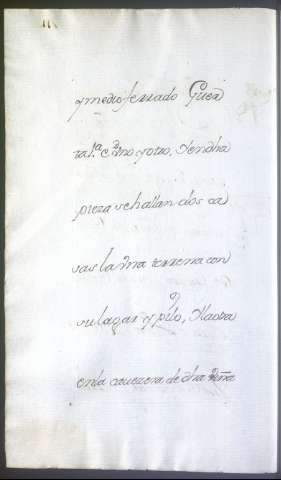 y medio ferrado Guer
ta l.ª e Vno y otro, Yendha
pieza se hallan dos ca
sas la Vna terrena con
su lagar y pilo, Ylaotra
en la cavezera de dha Viña